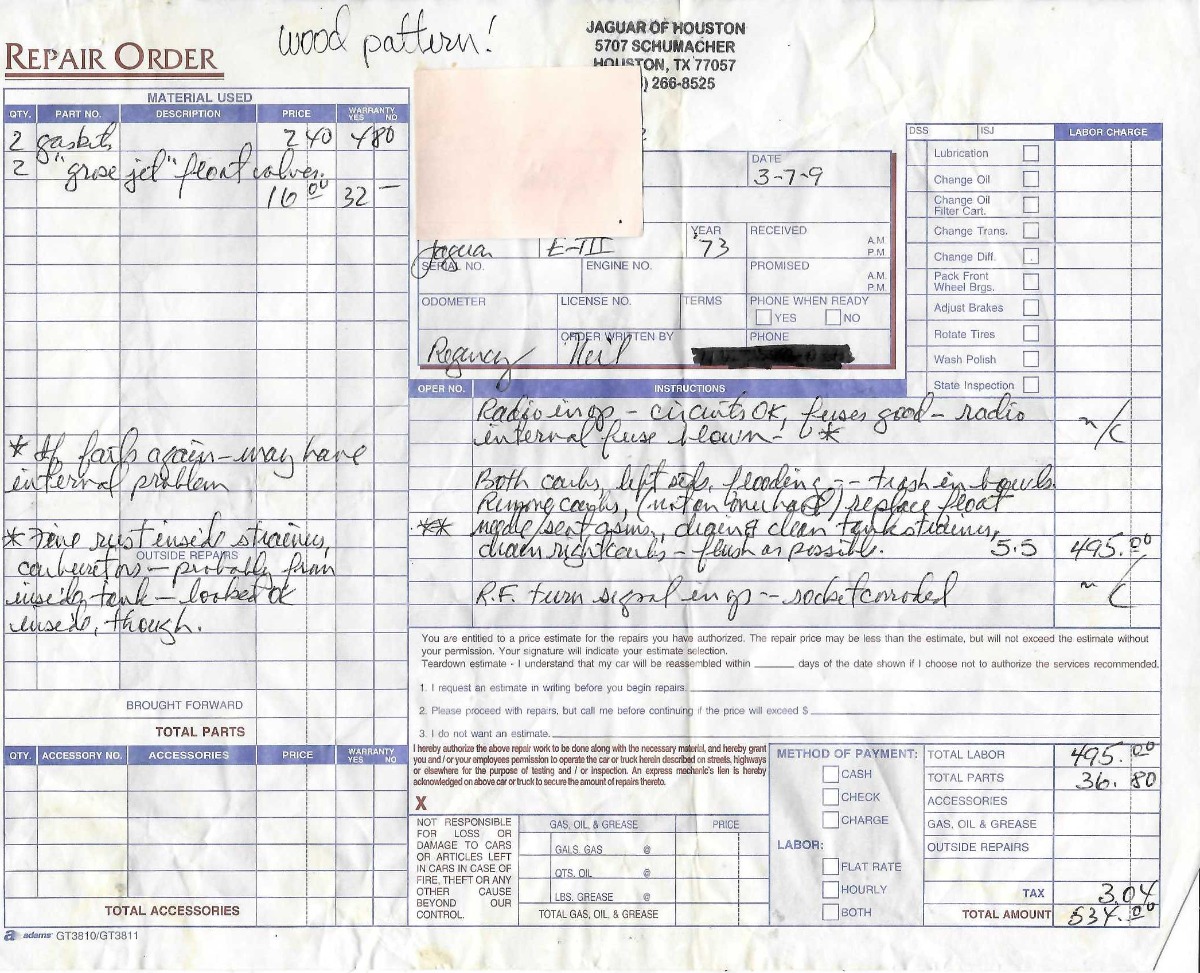 wood pattern!
JAGUAR OF HOUSTON
5707 SCHUMACHER
HOUSTON, TX 77057
) 266-8525
REPAIR ORDER
MATERIAL USED
QTY. PART NO. DESCRIPTION PRICE WARRANTY YES NO
2 gaskets 2 40 4 80
2 "grose jet" float valves
16 00 32 —
* If fails again - may have
internal problem
* Fine rust inside strainer,
OUTSIDE REPAIRS
carburetors - probably from
inside tank - looked ok
inside, though.
BROUGHT FORWARD
TOTAL PARTS
QTY. ACCESSORY NO. ACCESSORIES PRICE WARRANTY YES NO
TOTAL ACCESSORIES
adams GT3810/GT3811
DATE
3-7-9
YEAR RECEIVED A.M. P.M.
Jaguar E-III '73
SERIAL NO. ENGINE NO. PROMISED A.M. P.M.
ODOMETER LICENSE NO. TERMS PHONE WHEN READY
YES NO
ORDER WRITTEN BY PHONE
Regency Neil
DSS ISJ LABOR CHARGE
Lubrication
Change Oil
Change Oil Filter Cart.
Change Trans.
Change Diff.
Pack Front Wheel Brgs.
Adjust Brakes
Rotate Tires
Wash Polish
State Inspection
OPER NO. INSTRUCTIONS
Radio inop - circuits OK, fuses good - radio
internal fuse blown - * n/c
Both carbs, left side, flooding -- trash in bowls.
Remove carbs, replace float
** needle/seat asms, clean tank strainer,
drain right carbs - flush as possible. 5.5 495.00
R.F. turn signal inop - socket corroded
You are entitled to a price estimate for the repairs you have authorized. The repair price may be less than the estimate, but will not exceed the estimate without
your permission. Your signature will indicate your estimate selection.
Teardown estimate - I understand that my car will be reassembled within ______ days of the date shown if I choose not to authorize the services recommended.
1. I request an estimate in writing before you begin repairs.
2. Please proceed with repairs, but call me before continuing if the price will exceed $
3. I do not want an estimate.
I hereby authorize the above repair work to be done along with the necessary material, and hereby grant
you and / or your employees permission to operate the car or truck herein described on streets, highways
or elsewhere for the purpose of testing and / or inspection. An express mechanic's lien is hereby
acknowledged on above car or truck to secure the amount of repairs thereto.
X
NOT RESPONSIBLE
FOR LOSS OR
DAMAGE TO CARS
OR ARTICLES LEFT
IN CARS IN CASE OF
FIRE, THEFT OR ANY
OTHER CAUSE
BEYOND OUR
CONTROL.
GAS, OIL & GREASE PRICE
GALS. GAS @
QTS. OIL @
LBS. GREASE @
TOTAL GAS, OIL, & GREASE
METHOD OF PAYMENT:
CASH
CHECK
CHARGE
LABOR:
FLAT RATE
HOURLY
BOTH
TOTAL LABOR 495.00
TOTAL PARTS 36.80
ACCESSORIES
GAS, OIL & GREASE
OUTSIDE REPAIRS
TAX 3.04
TOTAL AMOUNT 534.00